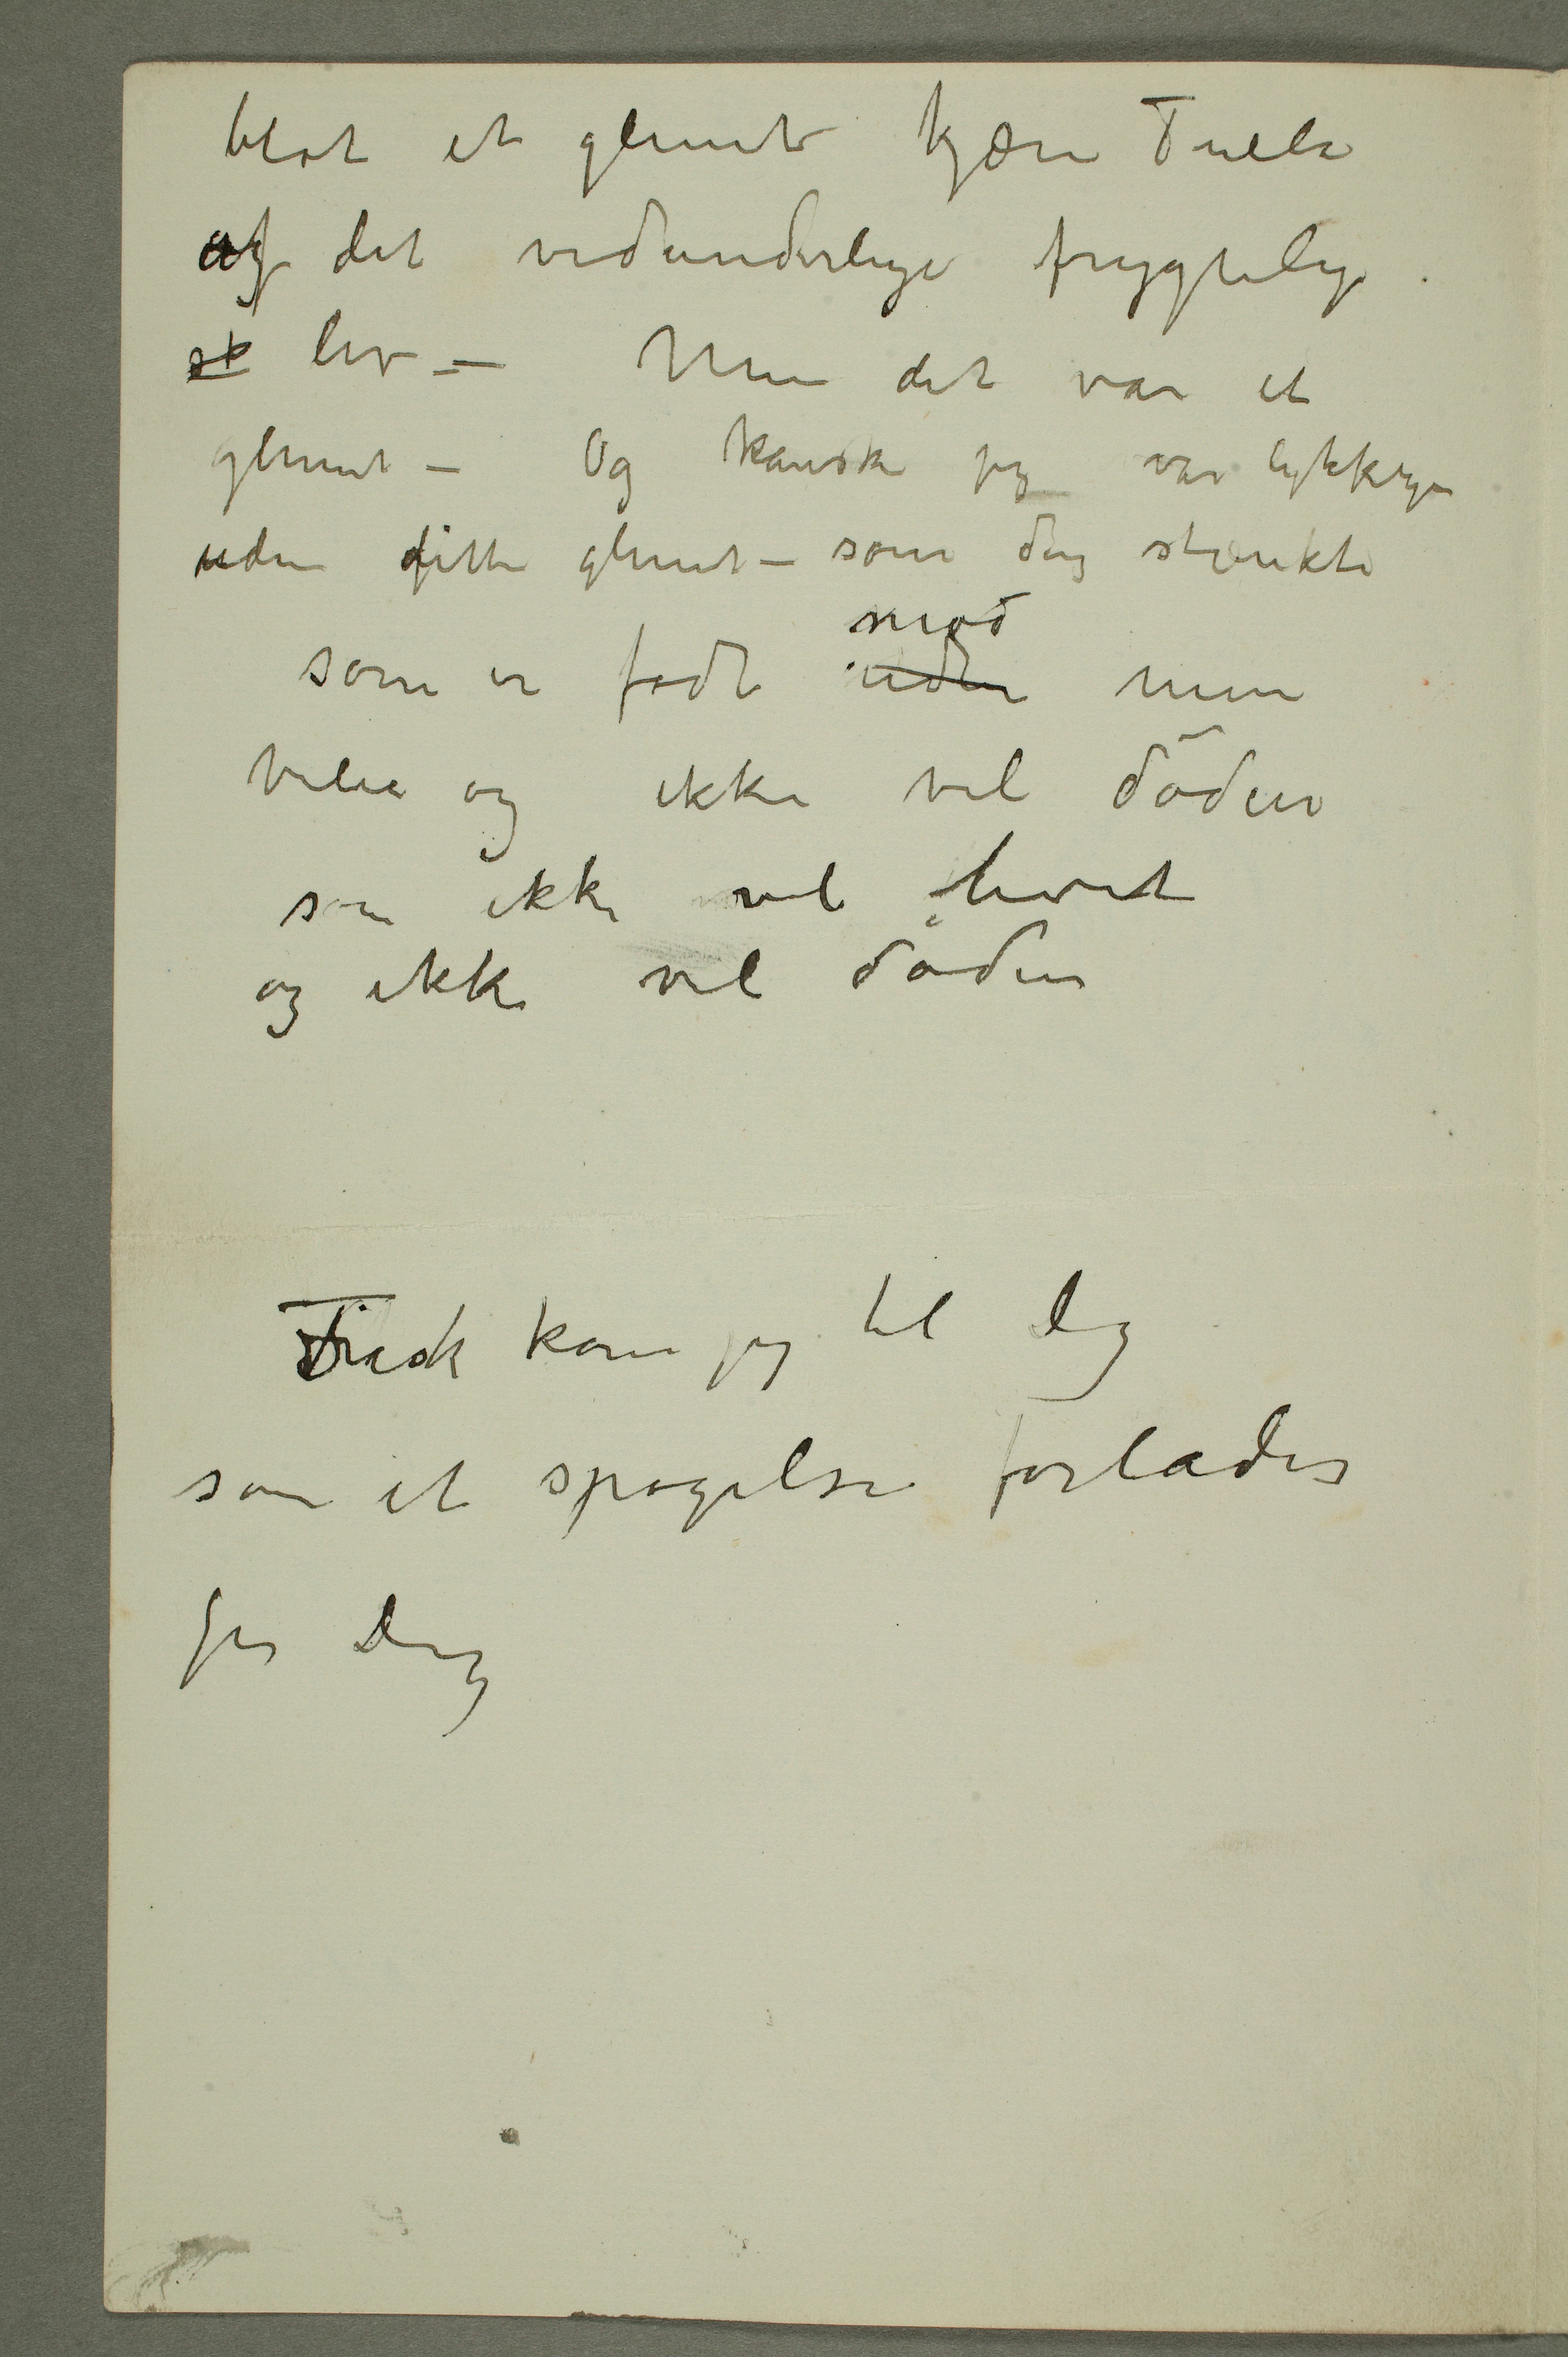 blot et glimt kjære Tulla
af det vidunderlige frygtelige
liv – Men det var et
glimt – Og kanske jeg var lykkeligere
uden dette glimt – som dog stærkte
mod
som er født uden min
vilie og ikke vil døden
som ikke vil livet
og ikke vil døden
Træsk kom jeg til Dig
som et spøgelse forlader
jeg Dig